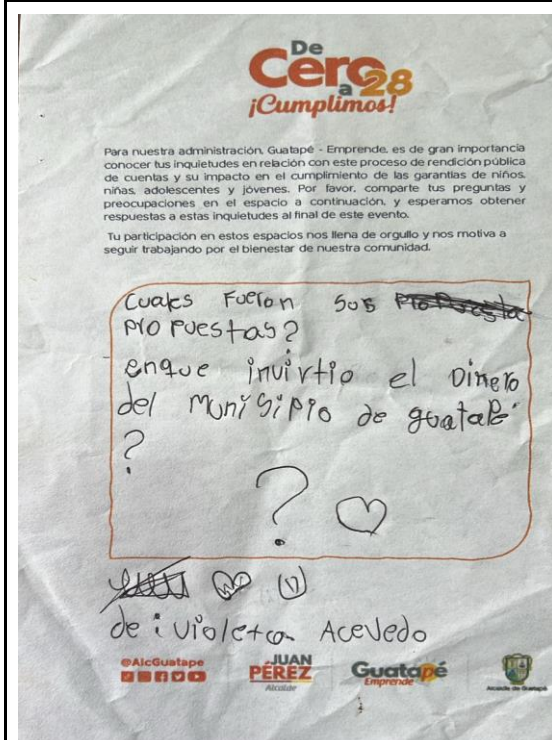 De
Cero
a 28
¡Cumplimos!
Para nuestra administración, Guatapé - Emprende, es de gran importancia
conocer tus inquietudes en relación con este proceso de rendición pública
de cuentas y su impacto en el cumplimiento de las garantías de niños,
niñas, adolescentes y jóvenes. Por favor, comparte tus preguntas y
preocupaciones en el espacio a continuación, y esperamos obtener
respuestas a estas inquietudes al final de este evento.
Tu participación en estos espacios nos llena de orgullo y nos motiva a
seguir trabajando por el bienestar de nuestra comunidad.
Cuales Fueron sus
propuestas?
enque invirtio el Dinero
del munisipio de guatape
?
?
de: violeta Acevedo
@AlcGuatape
JUAN
PÉREZ
Alcalde
Guatapé
Emprende
Alcaldía de Guatapé